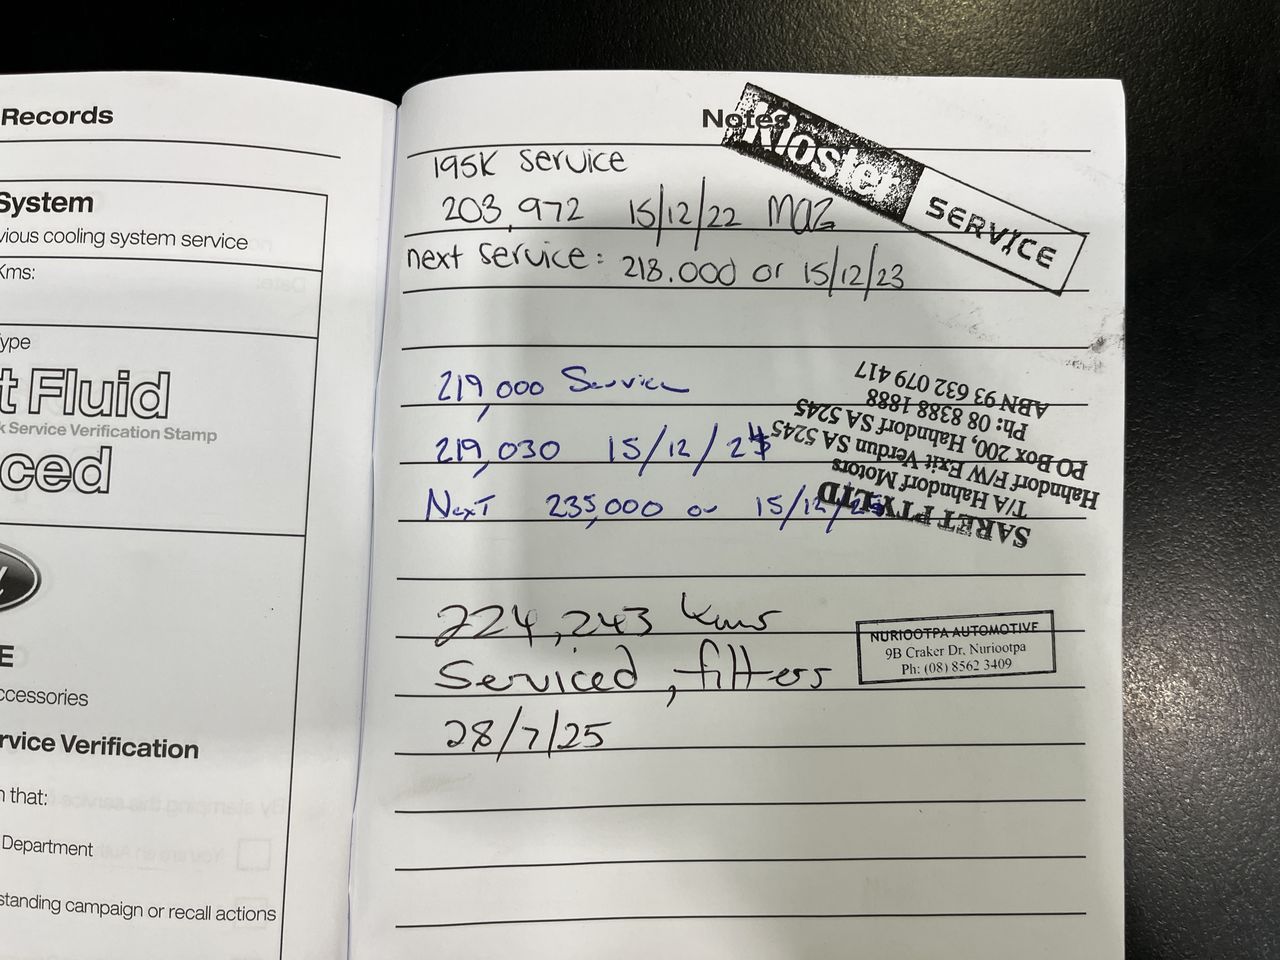 Records
System
vious cooling system service
Kms:
ype
t Fluid
k Service Verification Stamp
ced
E
ccessories
rvice Verification
n that:
Department
standing campaign or recall actions
Notes
Kloster SERVICE
195K Service
203,972 15/12/22 MAZ
next service: 218.000 or 15/12/23
219,000 Service
219,030 15/12/24
Next 235,000 or 15/12/25
SARET PTY LTD
T/A Hahndorf Motors
Hahndorf F/W Exit Verdun SA 5245
PO Box 200, Hahndorf SA 5245
Ph: 08 8388 1888
ABN 93 632 079 417
224,243 kms
Serviced, filters
28/7/25
NURIOOTPA AUTOMOTIVE
9B Craker Dr. Nuriootpa
Ph: (08) 8562 3409